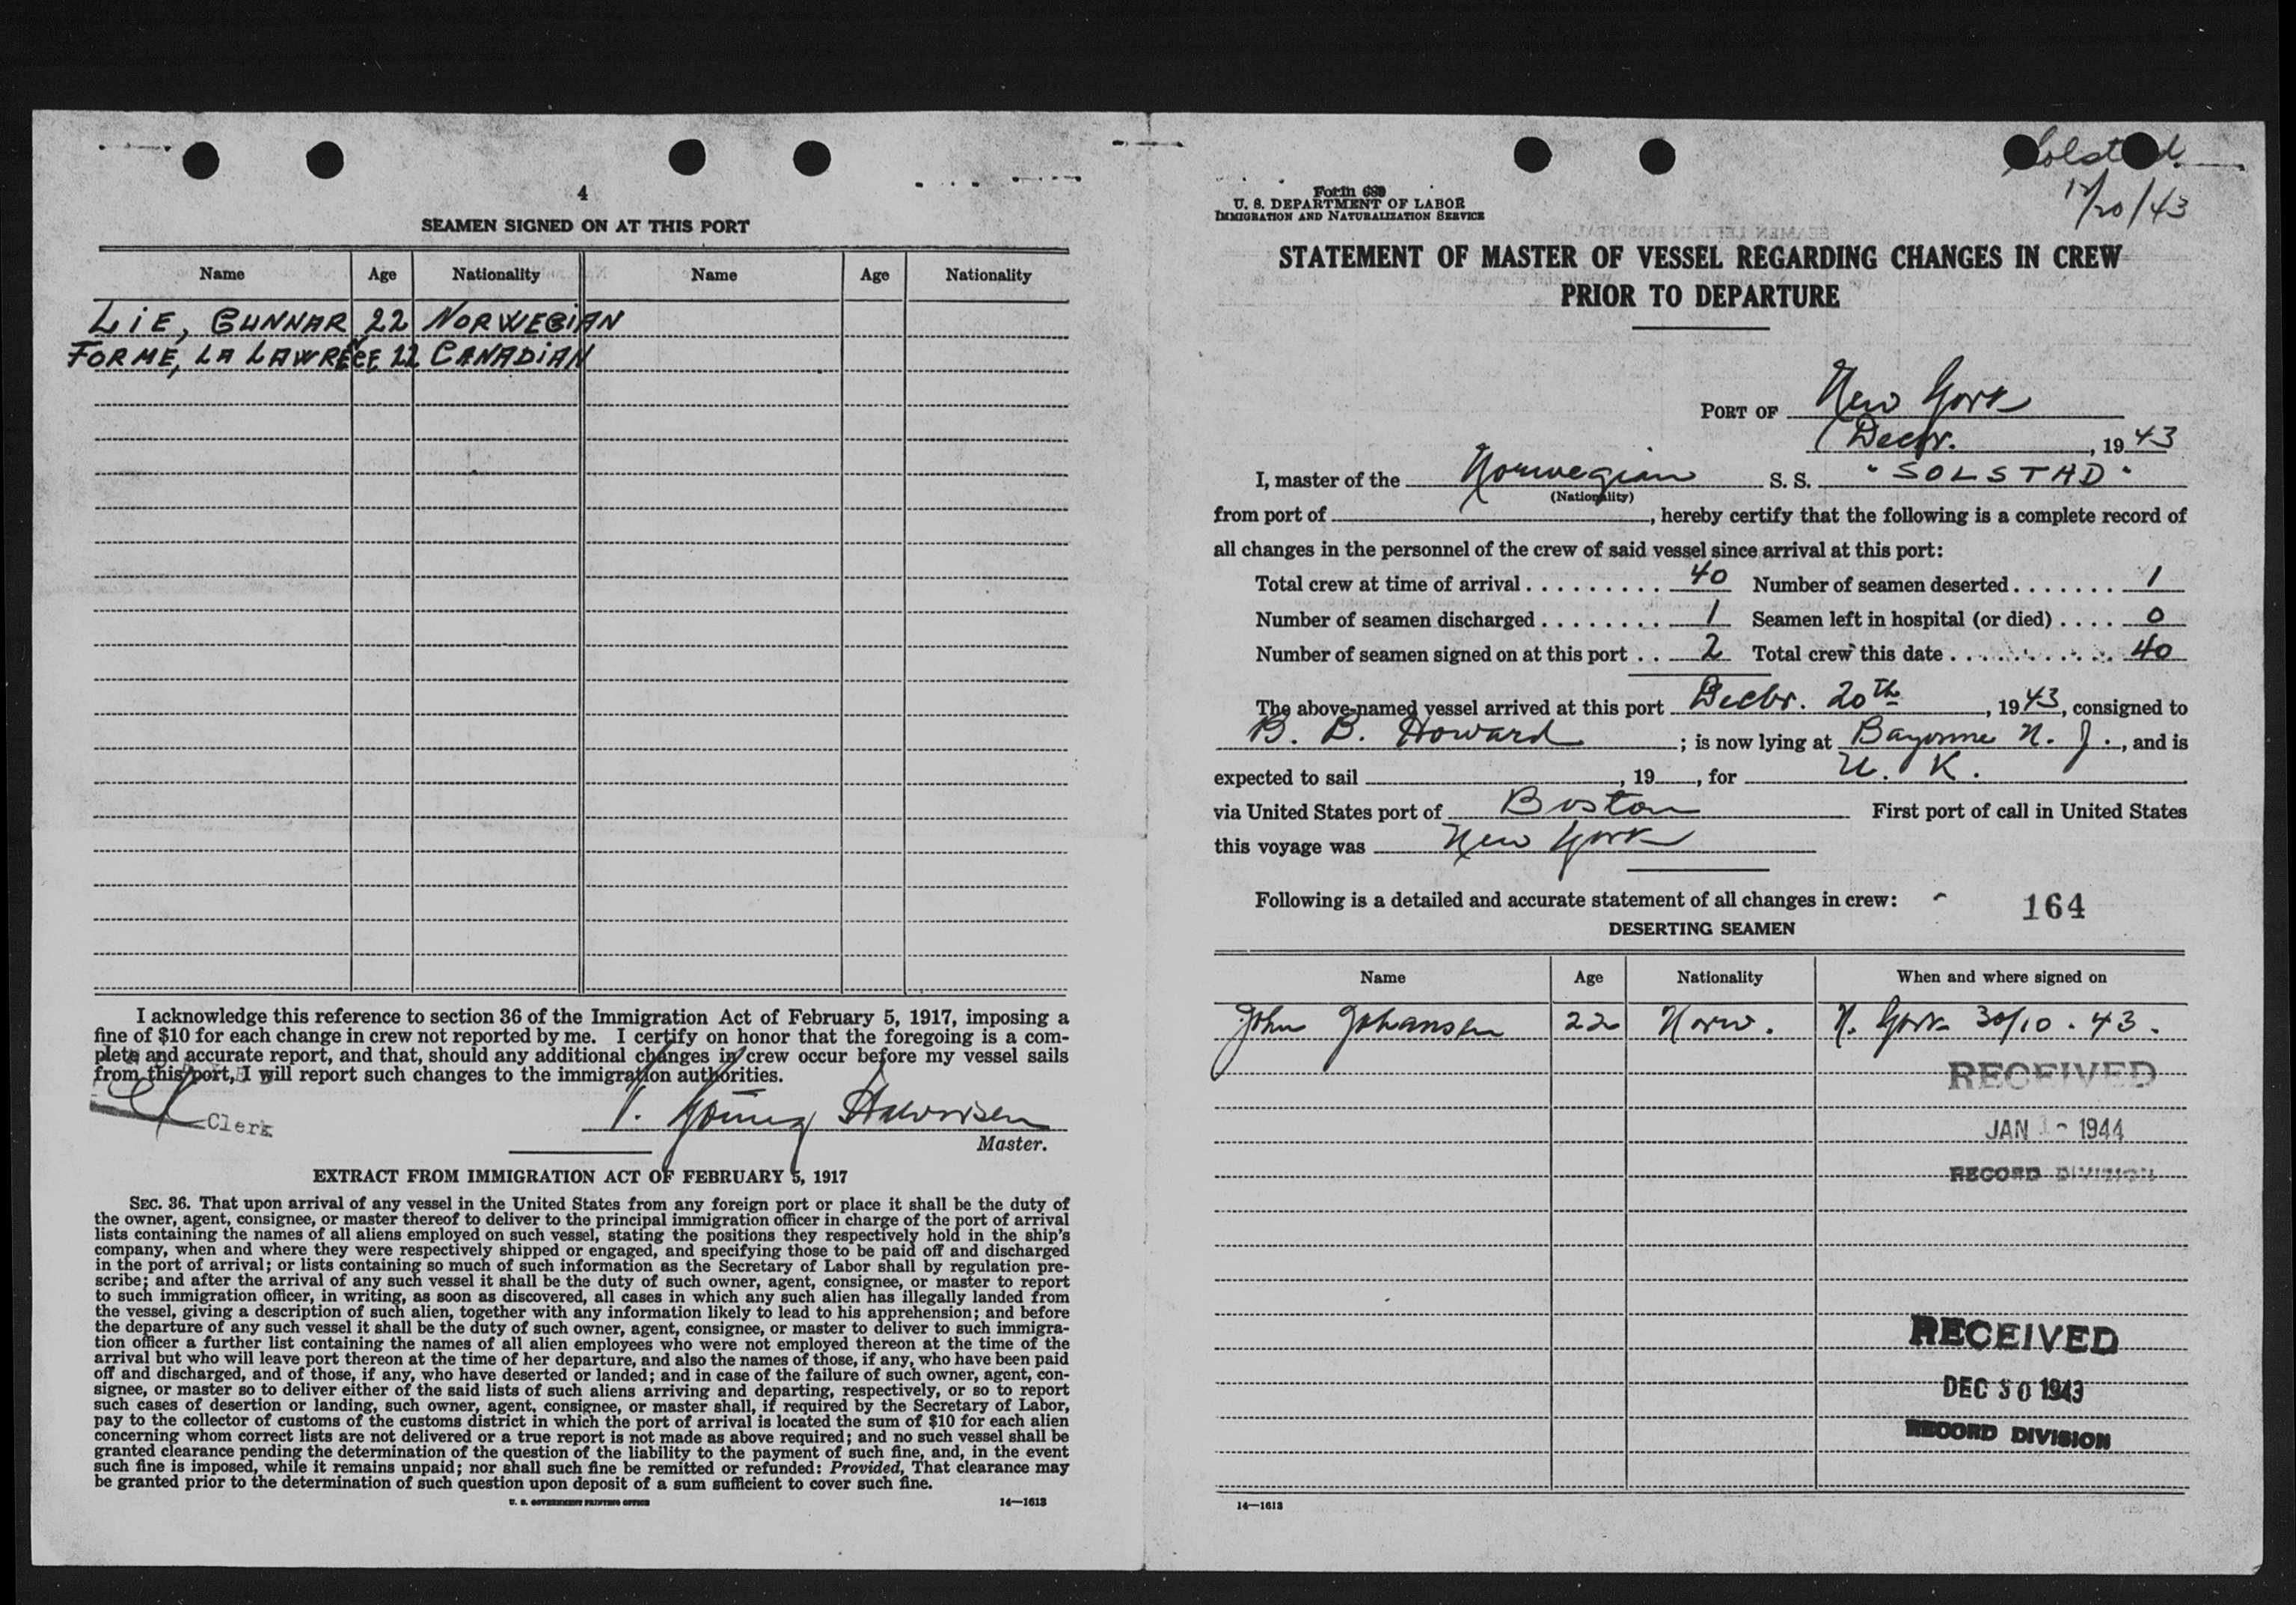 4
SEAMEN SIGNED ON AT THIS PORT
Name Age Nationality Name Age Nationality
LIE, GUNNAR 22 NORWEGIAN
FORME, LA LAWRENCE 22 CANADIAN
I acknowledge this reference to section 36 of the Immigration Act of February 5, 1917, imposing a
fine of $10 for each change in crew not reported by me. I certify on honor that the foregoing is a com-
plete and accurate report, and that, should any additional changes in crew occur before my vessel sails
from this port, I will report such changes to the immigration authorities.
Clerk
Master.
EXTRACT FROM IMMIGRATION ACT OF FEBRUARY 5, 1917
SEC. 36. That upon arrival of any vessel in the United States from any foreign port or place it shall be the duty of
the owner, agent, consignee, or master thereof to deliver to the principal immigration officer in charge of the port of arrival
lists containing the names of all aliens employed on such vessel, stating the positions they respectively hold in the ship's
company, when and where they were respectively shipped or engaged, and specifying those to be paid off and discharged
in the port of arrival; or lists containing so much of such information as the Secretary of Labor shall by regulation pre-
scribe; and after the arrival of any such vessel it shall be the duty of such owner, agent, consignee, or master to report
to such immigration officer, in writing, as soon as discovered, all cases in which any such alien has illegally landed from
the vessel, giving a description of such alien, together with any information likely to lead to his apprehension; and before
the departure of any such vessel it shall be the duty of such owner, agent, consignee, or master to deliver to such immigra-
tion officer a further list containing the names of all alien employees who were not employed thereon at the time of the
arrival but who will leave port thereon at the time of her departure, and also the names of those, if any, who have been paid
off and discharged, and of those, if any, who have deserted or landed; and in case of the failure of such owner, agent, con-
signee, or master so to deliver either of the said lists of such aliens arriving and departing, respectively, or so to report
such cases of desertion or landing, such owner, agent, consignee, or master shall, if required by the Secretary of Labor,
pay to the collector of customs of the customs district in which the port of arrival is located the sum of $10 for each alien
concerning whom correct lists are not delivered or a true report is not made as above required; and no such vessel shall be
granted clearance pending the determination of the question of the liability to the payment of such fine, and, in the event
such fine is imposed, while it remains unpaid; nor shall such fine be remitted or refunded: Provided, That clearance may
be granted prior to the determination of such question upon deposit of a sum sufficient to cover such fine.
U. S. GOVERNMENT PRINTING OFFICE 14—1613
Solstad
12/20/43
Form 689
U. S. DEPARTMENT OF LABOR
IMMIGRATION AND NATURALIZATION SERVICE
STATEMENT OF MASTER OF VESSEL REGARDING CHANGES IN CREW
PRIOR TO DEPARTURE
PORT OF New York
Decbr. , 19 43
I, master of the Norwegian S. S. "SOLSTAD"
(Nationality)
from port of , hereby certify that the following is a complete record of
all changes in the personnel of the crew of said vessel since arrival at this port:
Total crew at time of arrival . . . . . . . . . . 40 Number of seamen deserted . . . . . . . 1
Number of seamen discharged . . . . . . . . 1 Seamen left in hospital (or died) . . . . 0
Number of seamen signed on at this port . . 2 Total crew this date . . . . . . . . . . . . 40
The above-named vessel arrived at this port Decbr. 20th , 19 43, consigned to
B. B. Howard ; is now lying at Bayonne N. J. , and is
expected to sail , 19 , for U. K.
via United States port of Boston First port of call in United States
this voyage was New York
Following is a detailed and accurate statement of all changes in crew:
164
DESERTING SEAMEN
Name Age Nationality When and where signed on
John Johansen 22 Norw. N. York 30/10. 43.
RECEIVED
JAN 1944
RECORD DIVISION
RECEIVED
DEC 30 1943
RECORD DIVISION
14—1613